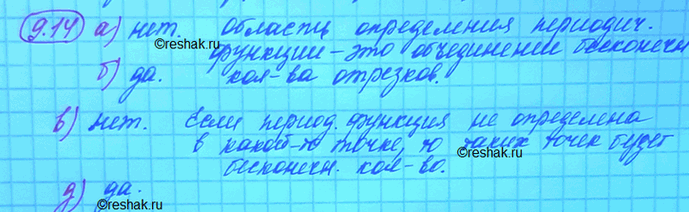 9.14 а) нет. область определения периодич.
©reshak.ru функции – это объединение бесконечн
б) да. кол-ва отрезков.
в) нет. Если период. функция не определена
в какой-то точке, то таких точек будет
©reshak.ru
бесконечн. кол-во.
д) да.
©reshak.ru